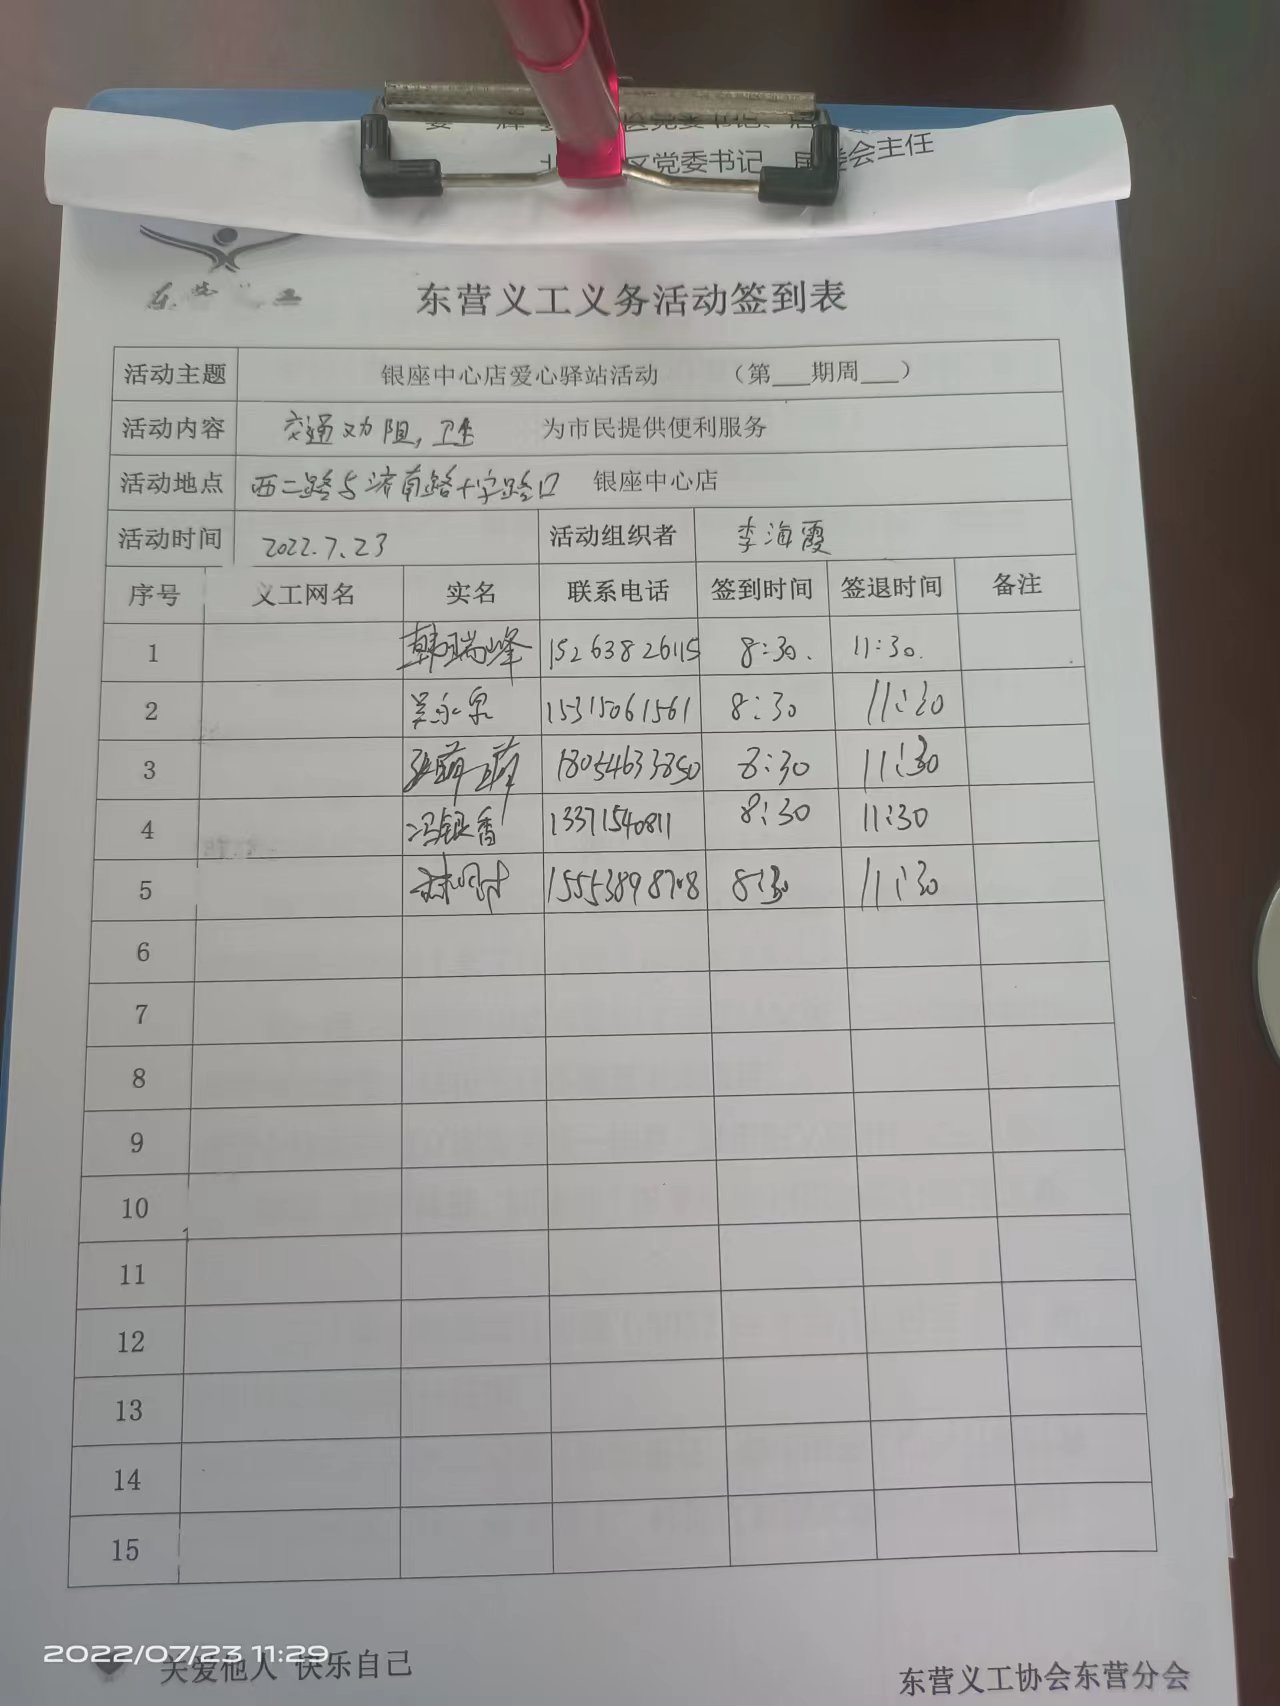 区党委书记、居委会主任
东营义工义务活动签到表
活动主题 银座中心店爱心驿站活动 （第___期周___）
活动内容 交通劝阻，卫生 为市民提供便利服务
活动地点 西二路与济南路十字路口 银座中心店
活动时间 2022.7.23 活动组织者 李海霞
序号 义工网名 实名 联系电话 签到时间 签退时间 备注
1 韩瑞峰 15263826115 8:30. 11:30.
2 吴永泉 15315061561 8:30 11:30
3 18054633850 8:30 11:30
4 冯银香 13371540811 8:30 11:30
5 15553898708 8:30 11:30
6
7
8
9
10
11
12
13
14
15
2022/07/23 11:29
关爱他人 快乐自己
东营义工协会东营分会